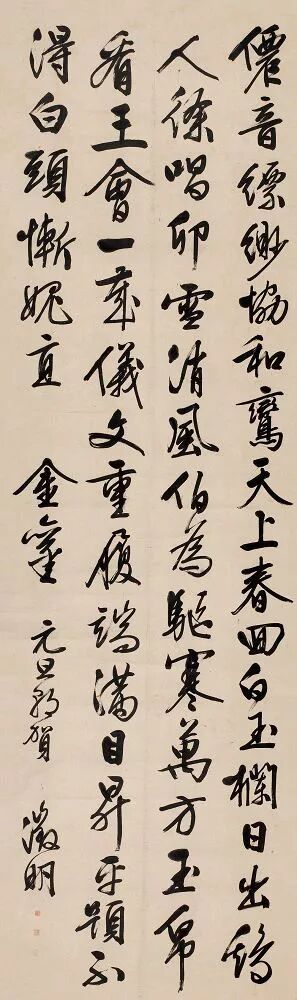 僊音縹緲協和鸞天上春回白玉欄日出鷄
人徐唱卯雪消風伯為驅寒萬方玉帛
看王會一歲儀文重履端滿目昇平題不
得白頭慚媿直 金鑾 元旦朝賀 徵明